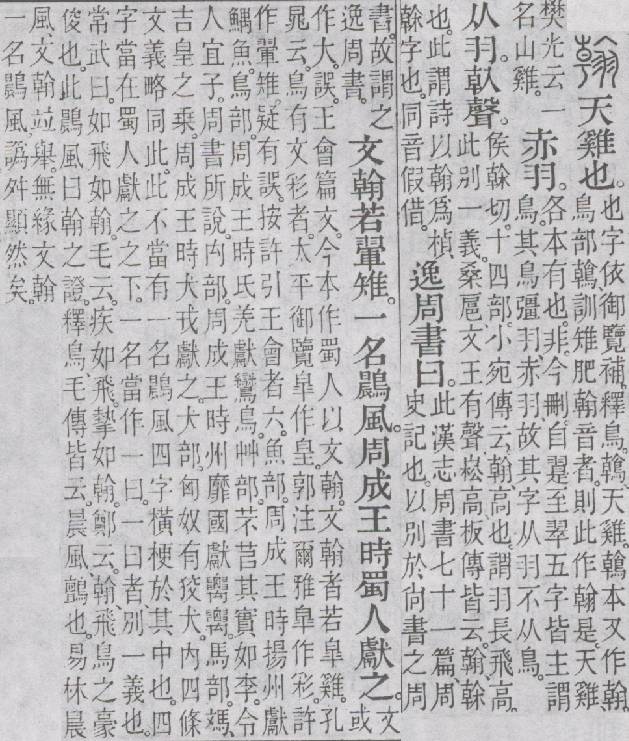 翰
天雞也。
也字依御覽補。釋鳥。鶾、天雞。鶾本又作翰。
鳥部鶾訓雉肥翰音者。則此作翰是。天雞、
樊光云一
名山雞。
赤羽。
各本有也。非。今刪。自翟至翠五字皆主謂
鳥。其鳥彊羽、赤羽。故其字从羽不从鳥。
从羽。倝聲。
矦榦切。十四部。小宛傳云。翰、高也。謂羽長飛高。
此別一義。桑扈文王有聲崧高板傳皆云。翰、榦
也。此謂詩以翰爲楨
榦字也。同音假借。
逸周書曰。
此漢志周書七十一篇。周
史記也。以別於尙書之周
書。故謂之
逸周書。
文翰若翬雉。一名鷐風。周成王時蜀人獻之。
文
或
作大。誤。王會篇文。今本作蜀人以文翰。文翰者若皐雞。孔
晁云。鳥有文彩者。太平御覽皐作皇。郭注爾雅皐作彩。許
作翬雉。疑有誤。按許引王會者六。魚部。周成王時揚州獻
鰅魚。鳥部。周成王時氐羌獻鸞鳥。艸部。芣苢其實如李。令
人宜子。周書所說。禸部。周成王時州靡國獻𥝀𥝀。馬部。媽、
吉皇之乘。周成王時犬戎獻之。犬部。匈奴有狡犬。內四條
文義略同此。此不當有一名鷐風四字橫梗於其中也。四
字當在蜀人獻之之下。一名當作一曰。一曰者、別一義也。
常武曰。如飛如翰。毛云。疾如飛。摯如翰。鄭云。翰、飛鳥之豪
俊也。此鷐風曰翰之證。釋鳥毛傳皆云。晨風、鸇也。易林晨
風文翰竝舉。無緣文翰
一名鷐風。譌舛顯然矣。